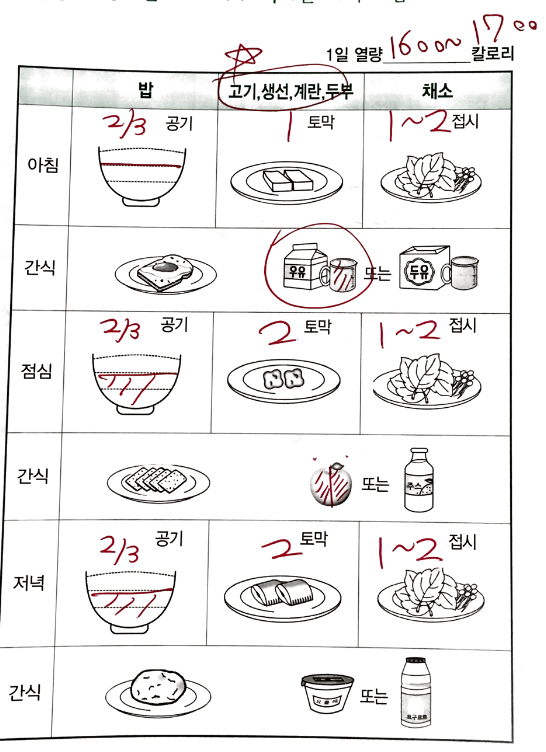 1일 열량 1600~1700 칼로리
밥 고기,생선,계란,두부 채소
아침 2/3 공기 1 토막 1~2 접시
간식 우유 또는 두유
점심 2/3 공기 2 토막 1~2 접시
간식 또는 주스
저녁 2/3 공기 2 토막 1~2 접시
간식 또는 요구르트